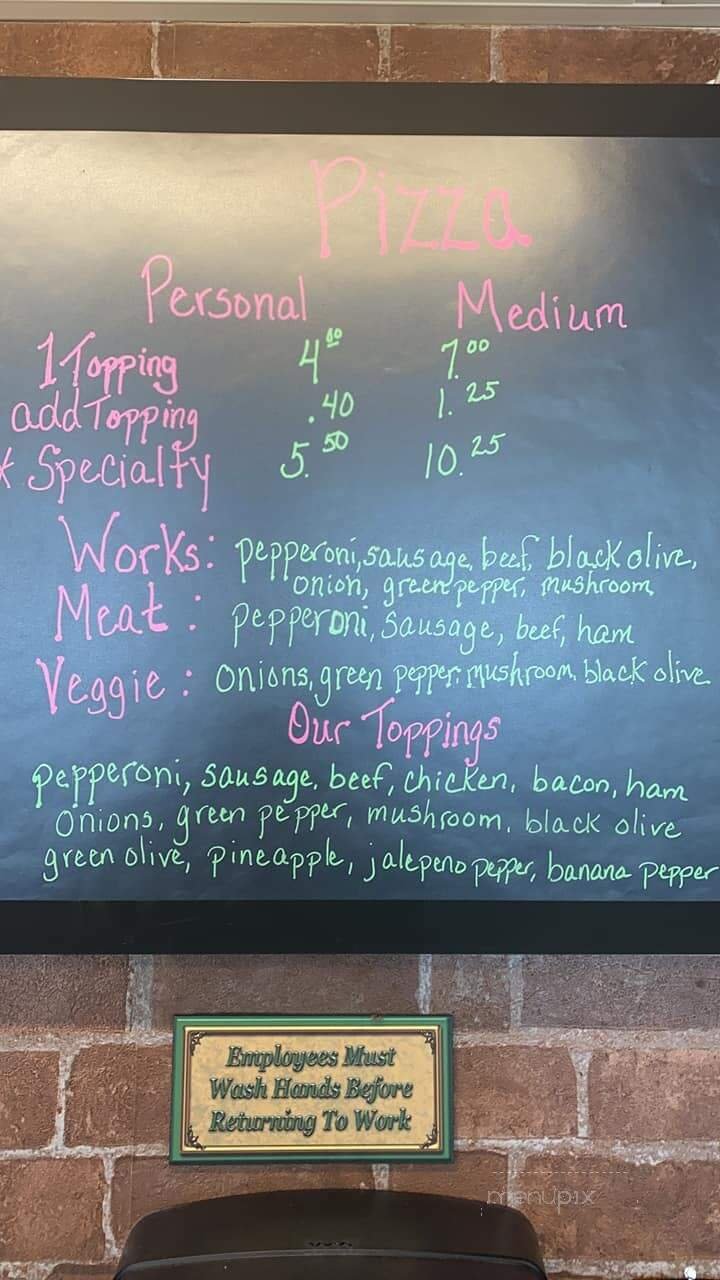 Pizza
Personal Medium
1 Topping 4.00 7.00
add Topping .40 1.25
* Specialty 5.50 10.25
Works: pepperoni, sausage, beef, black olive,
onion, green pepper, mushroom,
Meat: pepperoni, sausage, beef, ham
Veggie: onions, green pepper, mushroom, black olive
Our Toppings
pepperoni, sausage, beef, chicken, bacon, ham
onions, green pepper, mushroom, black olive
green olive, pineapple, jalepeno pepper, banana pepper
Employees Must
Wash Hands Before
Returning To Work
menupix